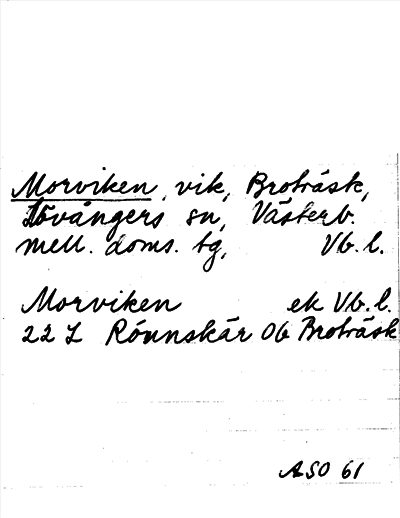 Morviken, vik, Broträsk,
Lövångers sn, Västerb.
mell. doms. tg, Vb. l.
Morviken ek Vb. l.
22 L Rönnskär 0b Broträsk
ASO 61